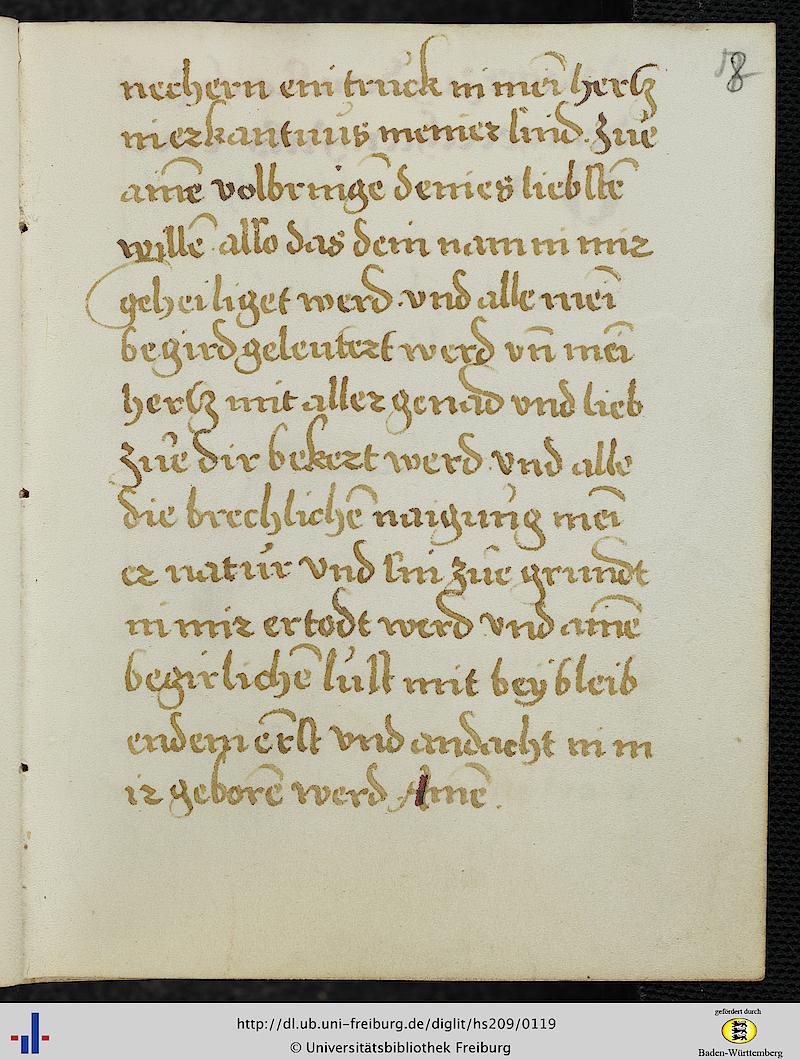 58
nechern ein truck in mei͂ hertz
in erkantnus meiner sünd. Zue
aine͂ volbringe͂ deines liebste͂
wille͂ also das dein nam in mir
geheiliget werd. vnd alle mei͂
begird geleutert werd vn͂ mei͂
hertz mit aller genad vnd lieb
Zue dir bekert werd vnd alle
die brechliche͂ naigung mei͂
er natur vnd sin zue grundt
in mir ertodt werd vnd aine͂
begirliche͂ lust mit beÿbleib
endem e͂rst vnd andacht in m
ir gebore͂ werd Ame͂.
http://dl.ub.uni-freiburg.de/diglit/hs209/0119
© Universitätsbibliothek Freiburg
gefördert durch
Baden-Württemberg